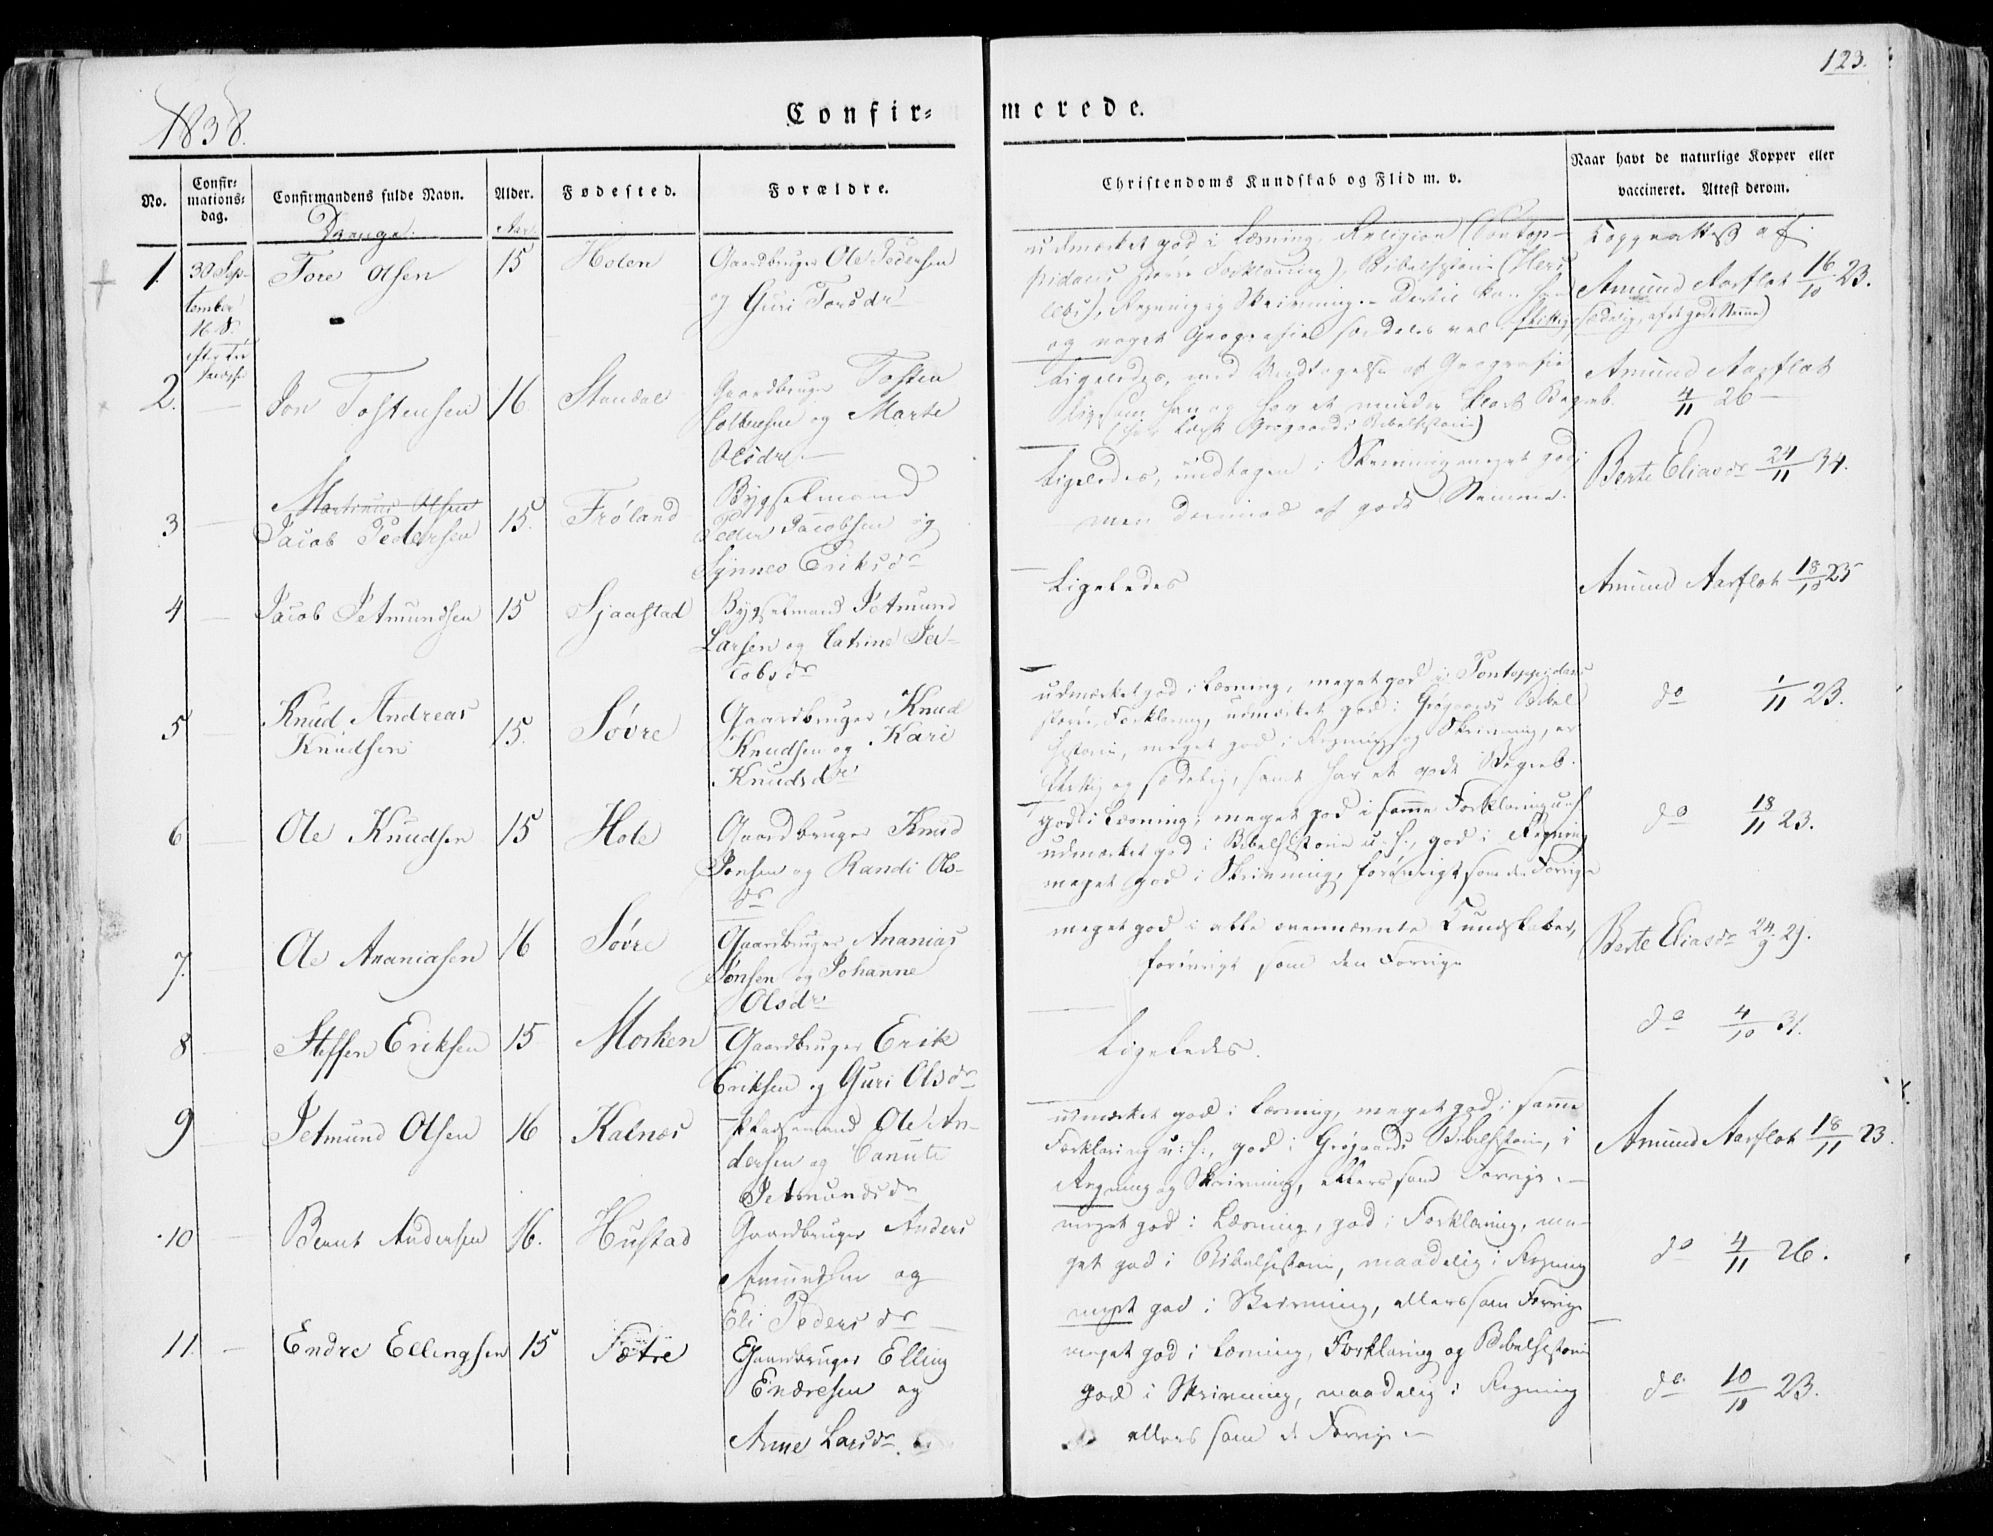 123.
1838.
Confir=merede.
No.
Confir=
mations=
dag.
Confirmandens fulde Navn.
Alder.
Fødested.
Forældre.
Christendoms Kundskab og Flid m. v.
Naar havt de naturlige Kopper eller
vaccineret. Attest derom.
Drenge.
Aar
1. 30 Sep-
tember
16 S.
efter Tri-
Tore Olsen 15 Holen
Gaardbruger Ole Pedersen
og Guri Torsdr
udmærket god i Læsning, Religion (Pontop-
pidans større Forklaring), Bibelhistorie (Hers
lebs), Regning og Skrivning. Dertil kan han
og noget Geografie, særdeles vel flittig, sædelig, af et godt Nemme)
Koppeattest af
Amund Aarflot 16/10 23.
2. Jon Tostensen 16 Standal
Gaardbruger Tosten
og Marte
Olsdr
Ligeledes, med Undtagelse af Geografie
ligesom han og har et mindre klart Begreb
(har læst Grøgaards Bibelhistorie)
Amund Aarflot
4/11 26
3 Martinus Olsen
Jacob Pedersen 15. Frøland
Bygselmand
Peder Jacobsen og
Synnev Eriksdr
Ligeledes, undtagen i Skrivning meget god;
men derimod af godt Nemme.
Berte Eliasdr 24/11 34.
4 Jacob Jetmundsen 15 Sjaastad
Bygselmand Jetmund
Larsen og Catrine Ja-
cobsdr
Ligeledes
Amund Aarflot 18/10 25
5 Knud Andreas
Knudsen 15. Søvre
Gaardbruger Knud
Knudsen og Kari
Knudsdr
udmærket god i Læsning, meget god i Pontoppidans
større Forklaring, udmærket god i Grøgaards Bibel
historie, meget god i Regning og Skrivning, er
flittig og sædelig, samt har et godt Begreb.
do 1/11 23.
6 Ole Knudsen 15 Hole
Gaardbruger Knud
Jonsen og Randi Ols-
dr
god i Læsning, meget god i samme Forklaring u. s.
udmærket god i Bibelhistorie u. s., god i Regning
meget god i Skrivning, forøvrigt som den Forrige
do 18/11 23.
7. Ole Ananiasen 16 Søvre
Gaardbruger Ananias
Jonsen og Johanne
Olsdr
meget god i alle ovennævnte Kundskaber,
forøvrigt som den Forrige
Berte Eliasdr 24/9 29.
8 Steffen Eriksen 15 Morken
Gaardbruger Erik
Eriksen og Guri Olsdr
Ligeledes.
do 4/10 31.
9 Jetmund Olsen 16 Kalnæs
Pladsemand Ole An-
dersen og Canute
Jetmundsdr
udmærket god i Læsning, meget god i samme
Forklaring u. s., god i Grøgaards Bibelhistorie, i
Regning og Skrivning, ellers som Forrige.
Amund Aarflot 18/11 23.
10 Bernt Andersen 16. Hustad
Gaardbruger Anders
Amundsen og
Eli Pedersdr
meget god i Læsning, god i Forklaring, me-
get god i Bibelhistorie, maadelig i Regning
meget god i Skrivning, ellers som Forrige
do 4/11 26.
11 Endre Ellingsen 15 Sætre
Gaardbruger Elling
Endresen og
Anne Larsdr.
meget god i Læsning, Forklaring og Bibelhistorie
god i Skrivning, maadelig i Regning
ellers som d. Forrige
do 10/11 23.